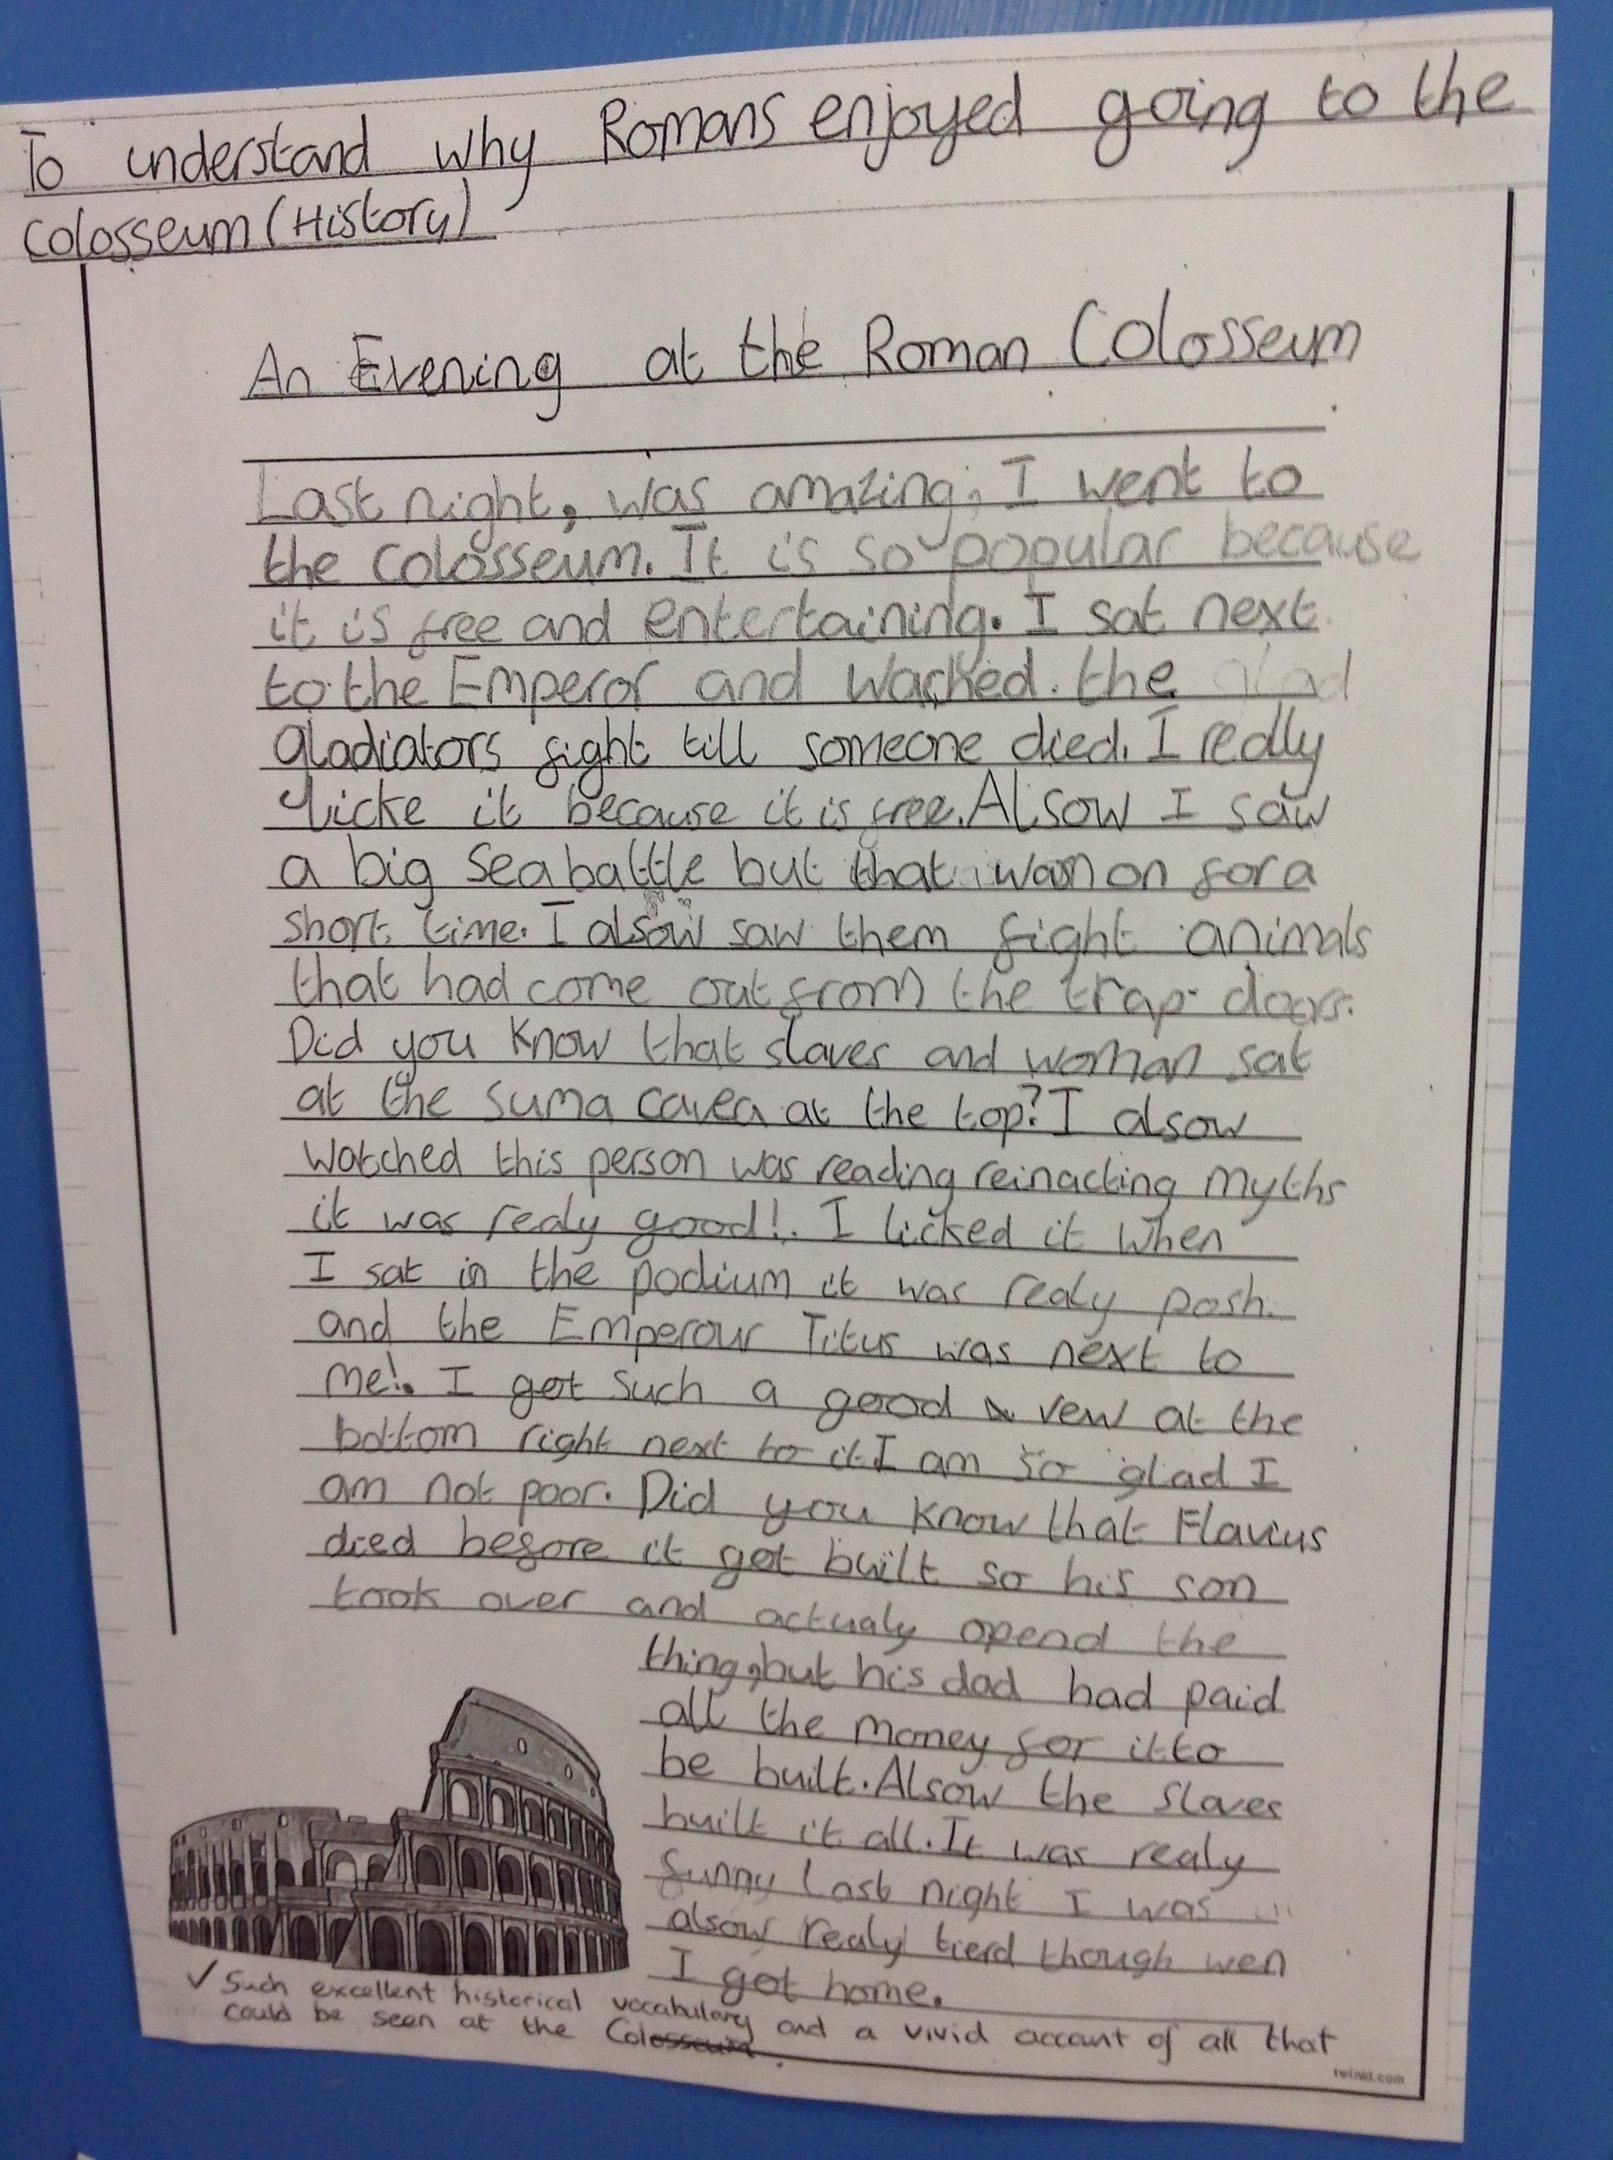 To understand why Romans enjoyed going to the
Colosseum (History)
An Evening at the Roman Colosseum
Last night, was amazing, I went to
the Colosseum. It is so popular because
it is free and entertaining. I sat next
to the Emperor and wached. the glad
gladiators fight till someone died. I really
licke it because it is free. Alsow I saw
a big sea battle but that was on for a
short time. I alsow saw them fight animals
that had come out from the trap doors.
Did you know that slaves and woman sat
at the suma cavea at the top? I alsow
watched this person was reading reinacting myths
it was realy good!. I licked it when
I sat in the podium it was realy posh.
and the Emperour Titus was next to
me!. I got such a good vew at the
bottom right next to it I am so glad I
am not poor. Did you know that Flavius
died before it got built so his son
took over and actualy opend the
thing, but his dad had paid
all the money for it to
be built. Alsow the slaves
built it all. It was realy
funny last night I was
alsow realy tierd though wen
I got home.
✓ Such excellent historical vocabulary and a vivid account of all that
could be seen at the Colosseum.
twinkl.com